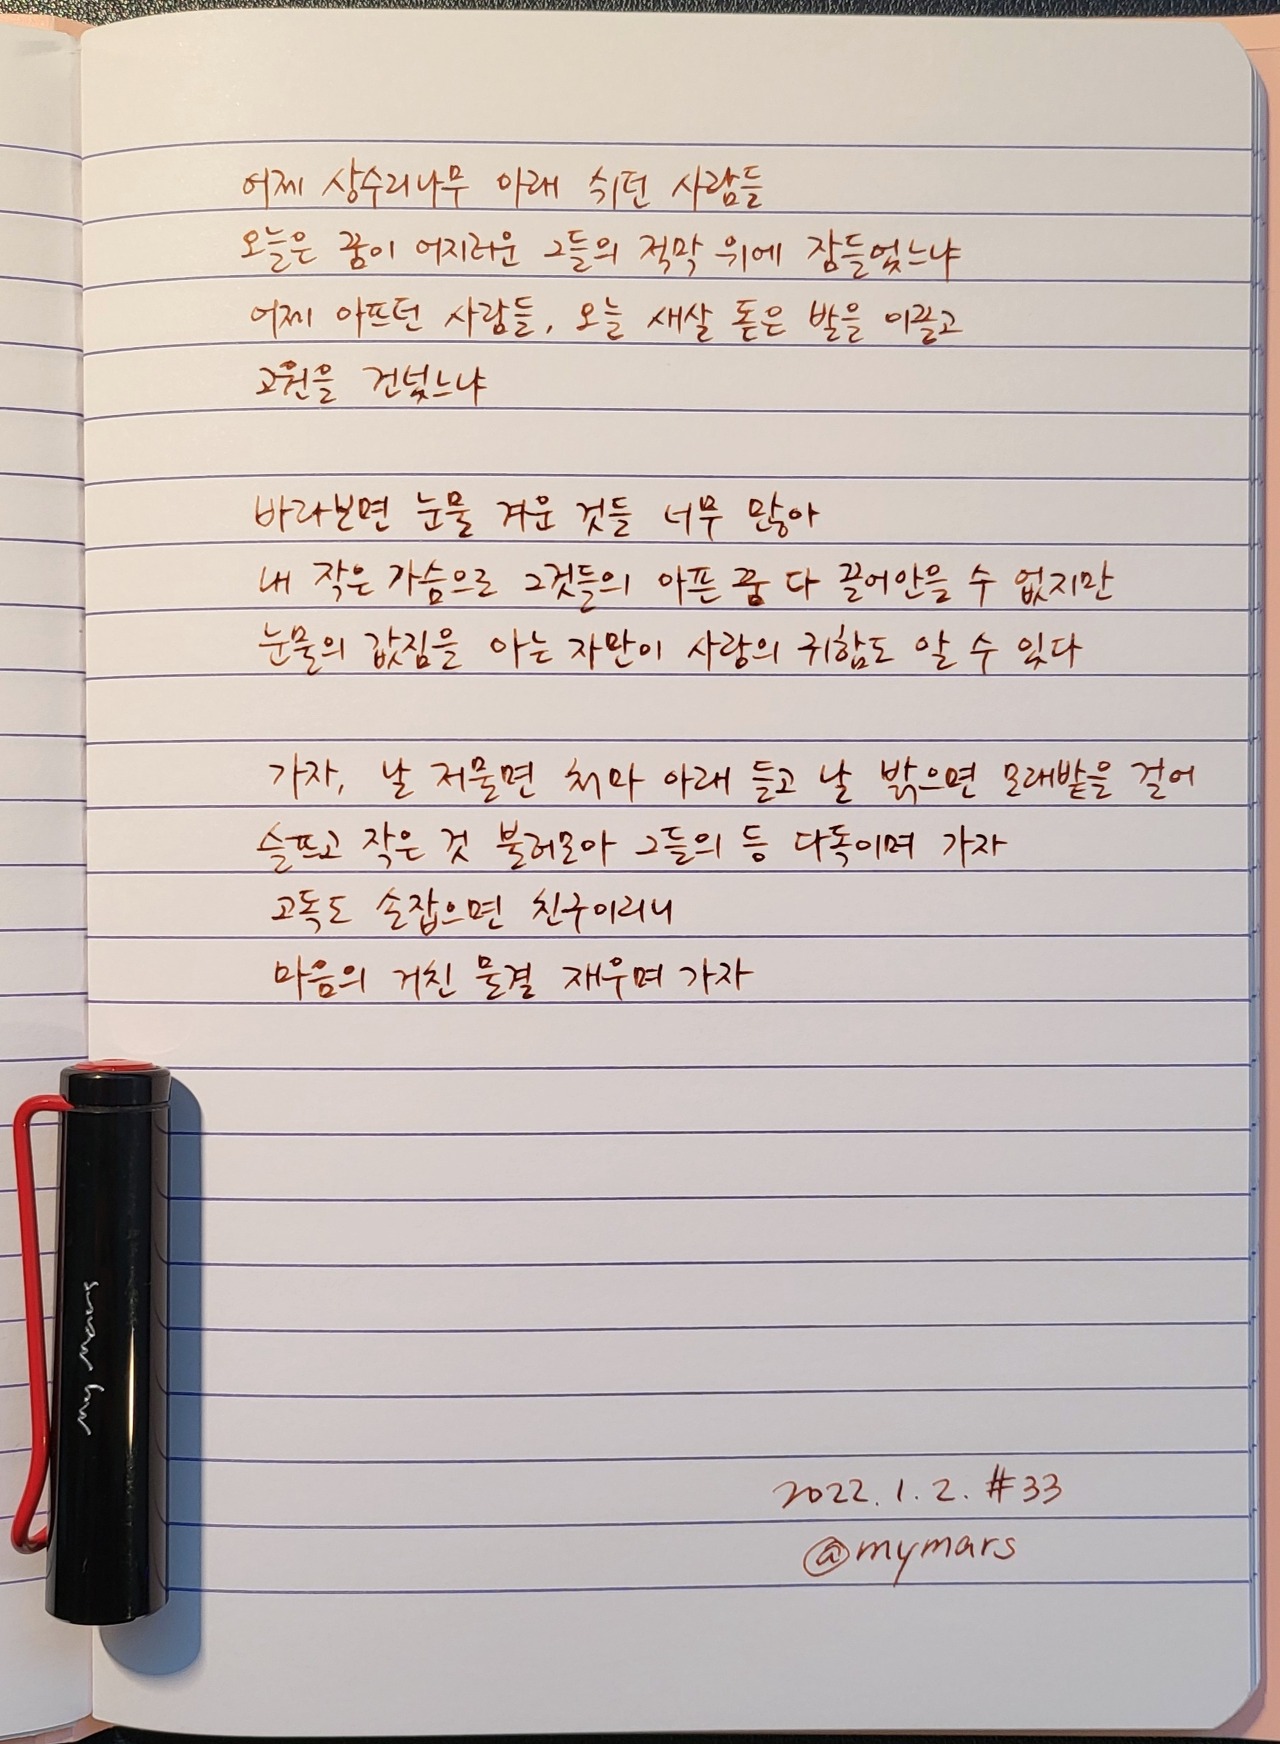 어제 상수리나무 아래 쉬던 사람들
오늘은 꿈이 어지러운 그들의 적막 위에 잠들었느냐
어제 아프던 사람들, 오늘 새살 돋은 발을 이끌고
고원을 건넜느냐
바라보면 눈물 겨운 것들 너무 많아
내 작은 가슴으로 그것들의 아픈 꿈 다 끌어안을 수 없지만
눈물의 값짐을 아는 자만이 사랑의 귀함도 알 수 있다
가자, 날 저물면 처마 아래 들고 날 밝으면 모래밭을 걸어
슬프고 작은 것 불러모아 그들의 등 다독이며 가자
고독도 손잡으면 친구이리니
마음의 거친 물결 재우며 가자
2022. 1. 2. #33
@mymars
my mars